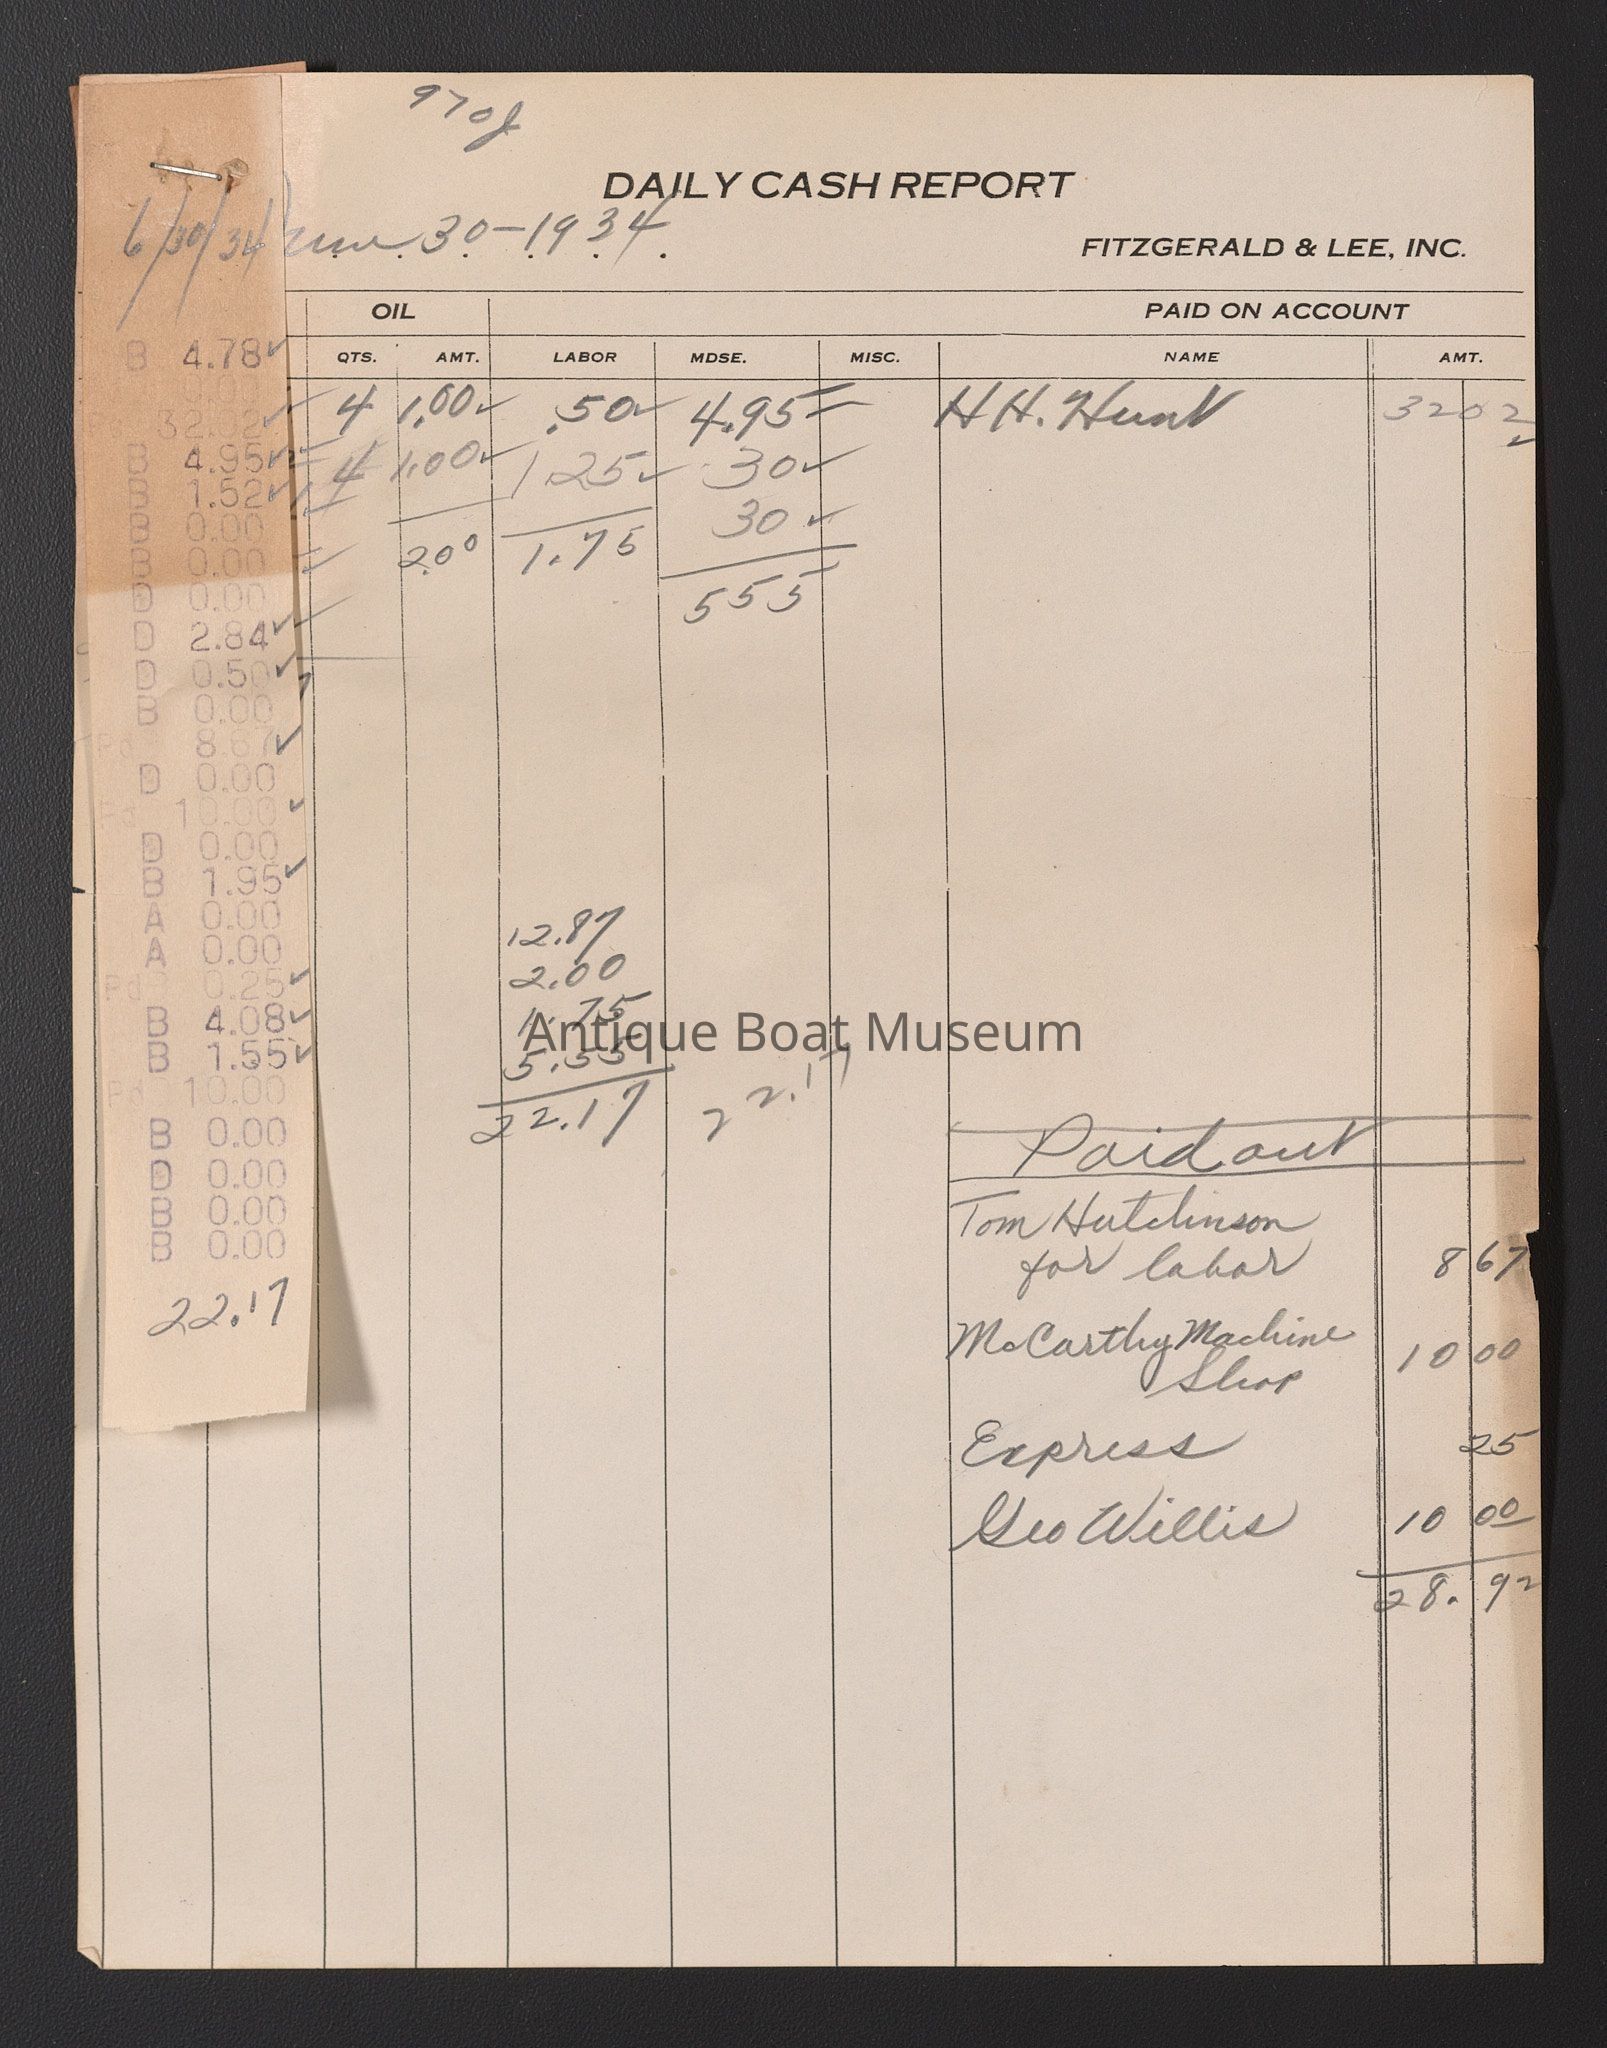 DAILY CASH REPORT
6/30/34 June 30-1934
FITZGERALD & LEE, INC.
OIL PAID ON ACCOUNT
QTS. AMT. LABOR MDSE. MISC. NAME AMT.
4 1.00 .50 4.95 H H. Hunt 32 02
4 1.00 1 25 30
30
2.00 1.75
555
B 4.78
0.00
32.02
B 4.95
B 1.52
B 0.00
B 0.00
D 0.00
D 2.84
D 0.50
B 0.00
Pd 8.67
D 0.00
Pd 10.00
D 0.00
B 1.95
A 0.00
A 0.00
Pd 0.25
B 4.08
B 1.55
Pd 10.00
B 0.00
D 0.00
B 0.00
B 0.00
22.17
12.87
2.00
1.75
5.55
22.17 22.17
Antique Boat Museum
Paid out
Tom Hutchinson
for labor 8 67
McCarthy Machine
Shop 10 00
Express 25
Geo Willis 10 00
28.92